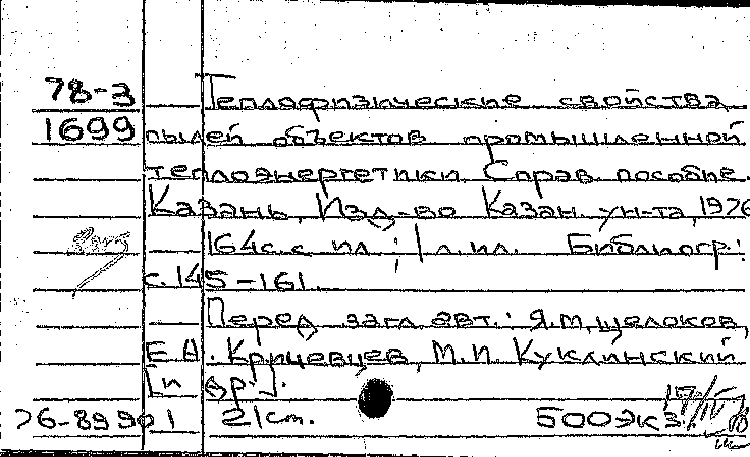 78-3 Теплофизические свойства
1699 пылей объектов промышленной
теплоэнергетики. Справ. пособие.
Казань, Изд-во Казан. ун-та, 1976
164 с. с ил.; 1 л. ил. Библиогр.:
с. 145-161.
Перед загл. авт.: Я.М. Щелоков,
Е.А. Кричевцев, М.И. Куклинский
[и др.].
76-89901 21 см. 500 экз.
17/IV